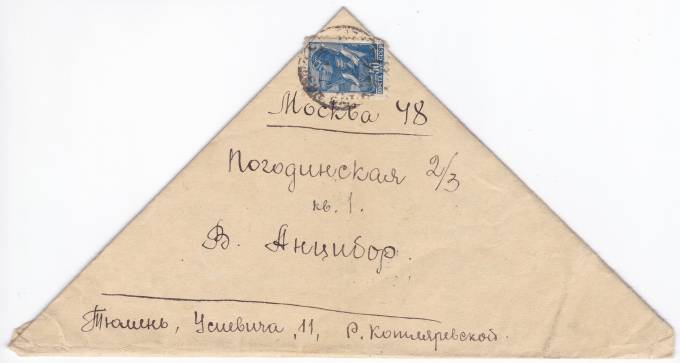 Москва 48
Погодинская 2/3
кв. 1.
В. Анцибор.
Тюмень, Усиевича, 11, Р. Котляревской.